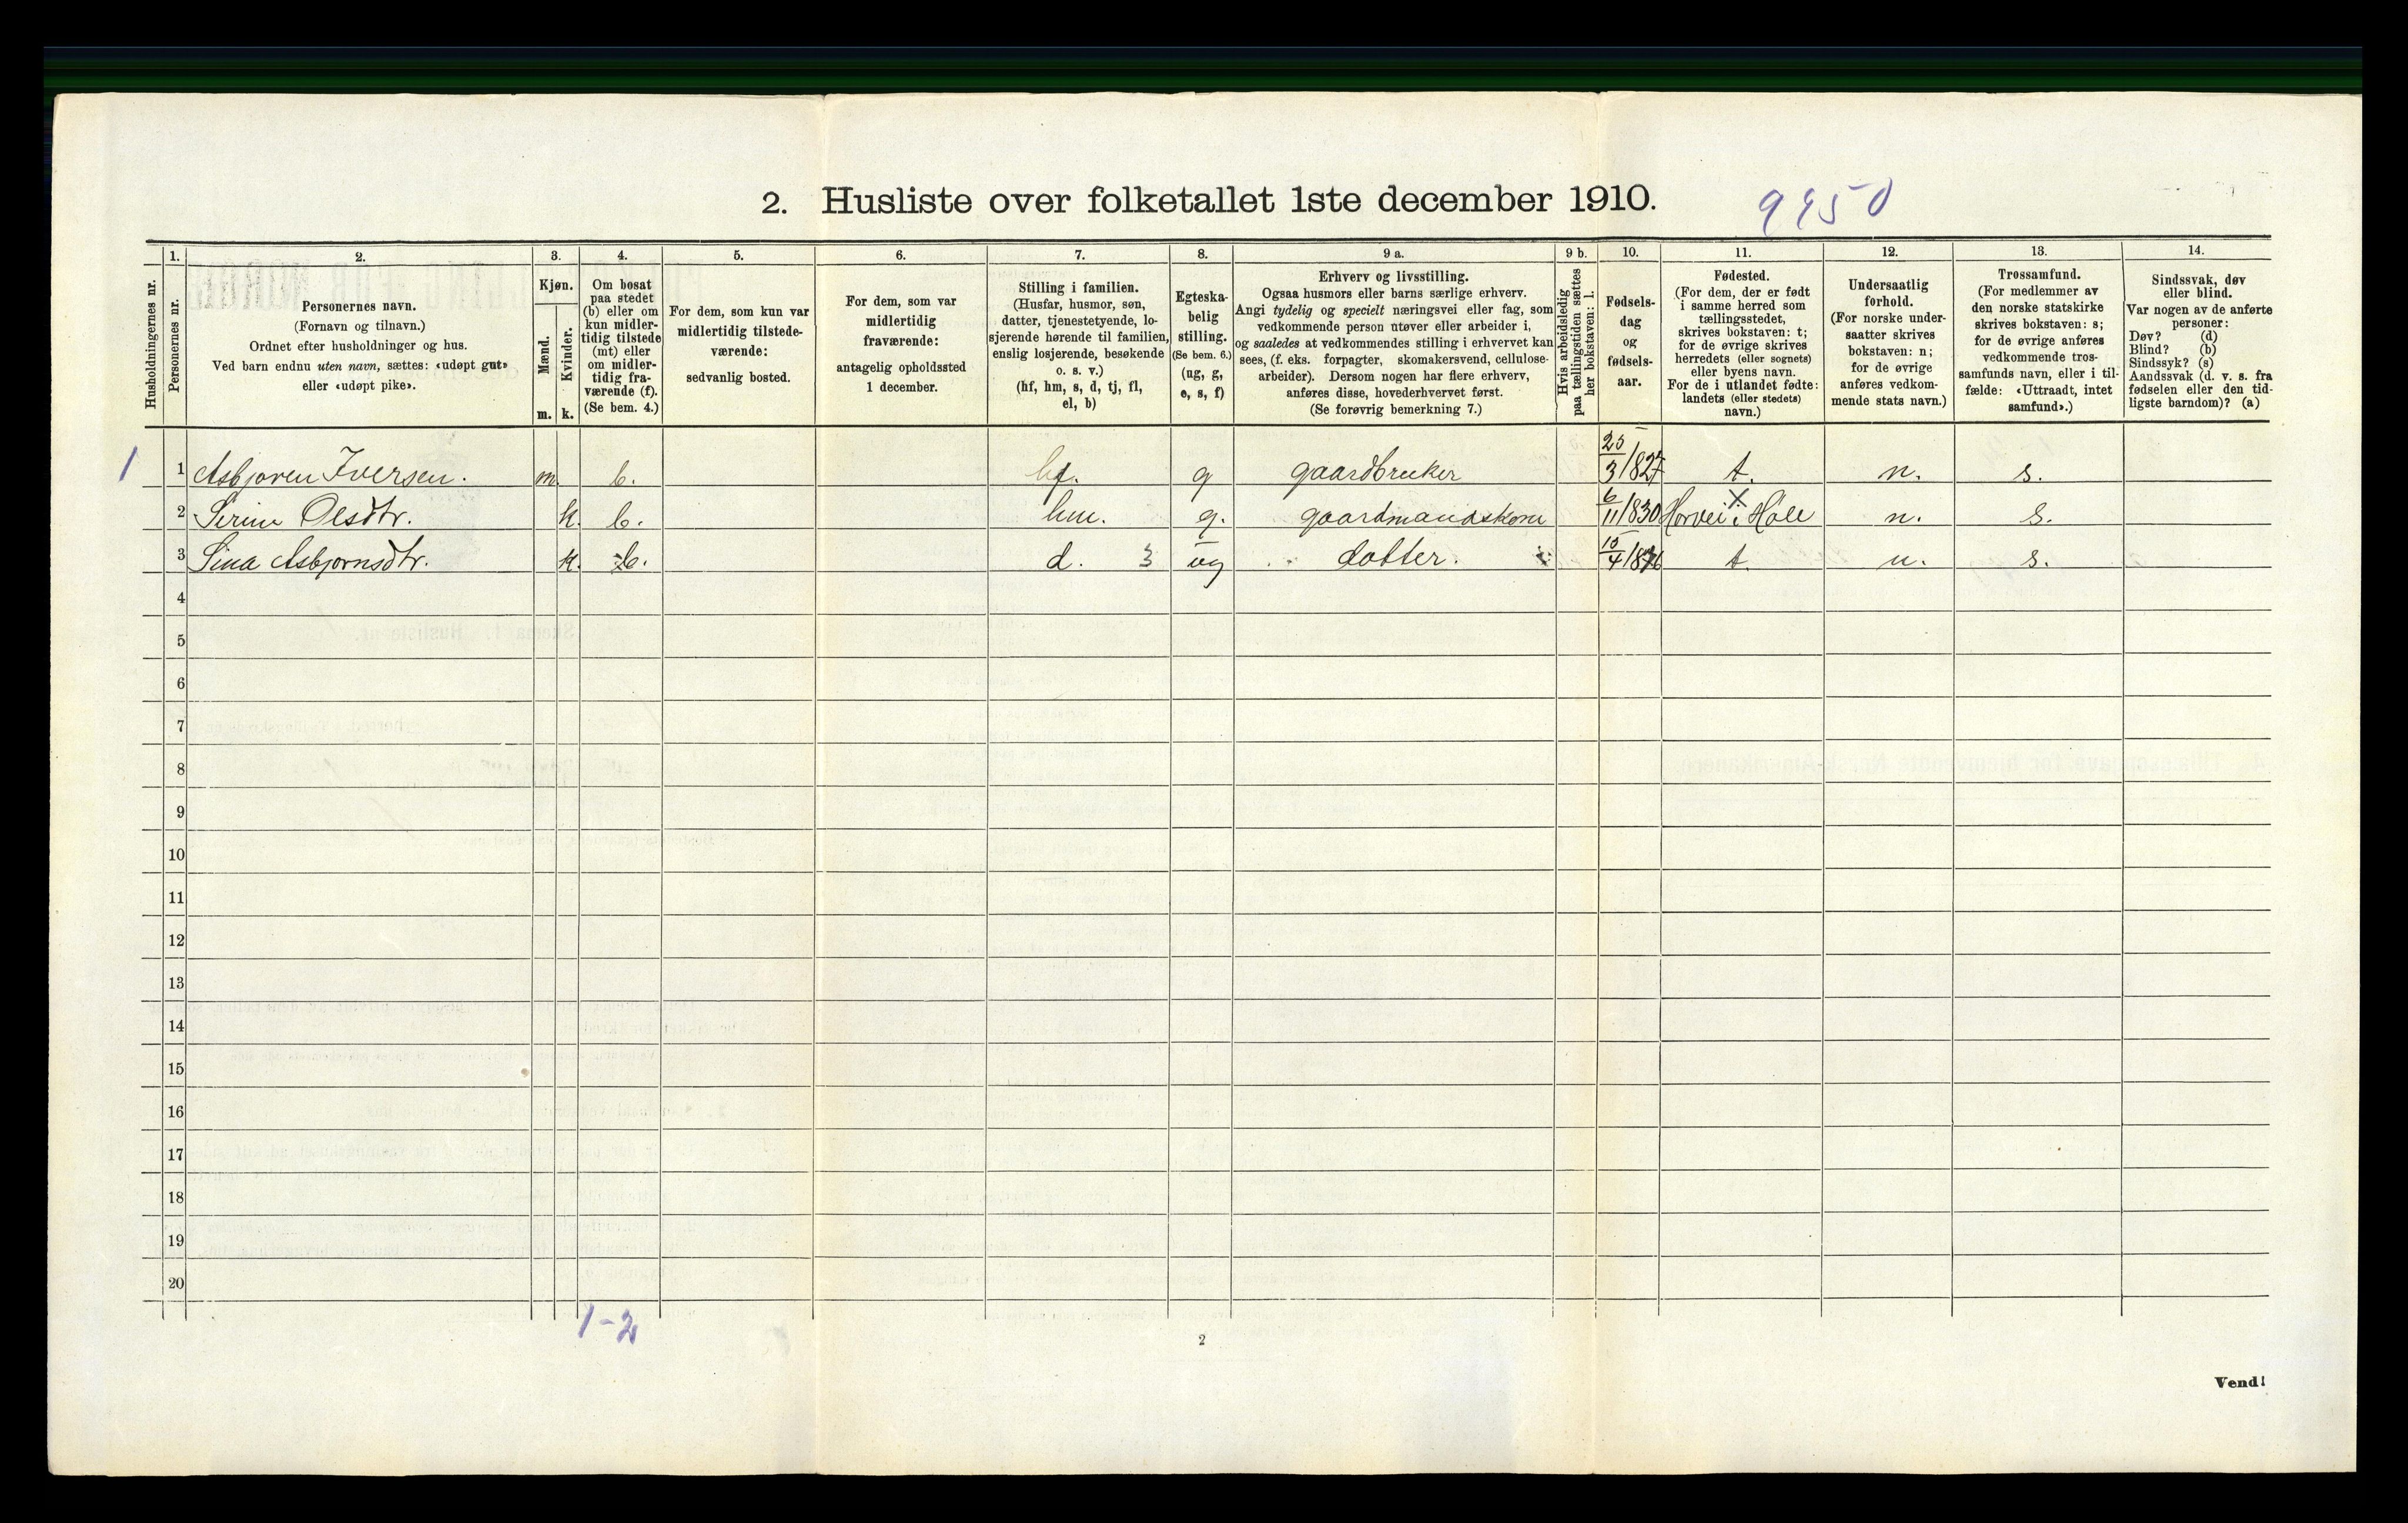 2. Husliste over folketallet 1ste december 1910.
Husholdningernes nr.
1.
Personernes nr.
2.
Personernes navn.
(Fornavn og tilnavn.)
Ordnet efter husholdninger og hus.
Ved barn endnu uten navn, sættes: «udøpt gut»
eller «udøpt pike».
3.
Kjøn.
Mænd.
Kvinder.
m. k.
4.
Om bosat
paa stedet
(b) eller om
kun midler-
tidig tilstede
(mt) eller
om midler-
tidig fra-
værende (f).
(Se bem. 4.)
5.
For dem, som kun var
midlertidig tilstede-
værende:
sedvanlig bosted.
6.
For dem, som var
midlertidig
fraværende:
antagelig opholdssted
1 december.
7.
Stilling i familien.
(Husfar, husmor, søn,
datter, tjenestetyende, lo-
sjerende hørende til familien,
enslig losjerende, besøkende
o. s. v.)
(hf, hm, s, d, tj, fl,
el, b)
8.
Egteska-
belig
stilling.
(Se bem. 6.)
(ug, g,
e, s, f)
9 a.
Erhverv og livsstilling.
Ogsaa husmors eller barns særlige erhverv.
Angi tydelig og specielt næringsvei eller fag, som
vedkommende person utøver eller arbeider i,
og saaledes at vedkommendes stilling i erhvervet kan
sees, (f. eks. forpagter, skomakersvend, cellulose-
arbeider). Dersom nogen har flere erhverv,
anføres disse, hovederhvervet først.
(Se forøvrig bemerkning 7.)
9 b.
Hvis arbeidsledig
paa tællingstiden sættes
her bokstaven: l.
10.
Fødsels-
dag
og
fødsels-
aar.
11.
Fødested.
(For dem, der er født
i samme herred som
tællingsstedet,
skrives bokstaven: t;
for de øvrige skrives
herredets (eller sognets)
eller byens navn.
For de i utlandet fødte:
landets (eller stedets)
navn.)
12.
Undersaatlig
forhold.
(For norske under-
saatter skrives
bokstaven: n;
for de øvrige
anføres vedkom-
mende stats navn.)
13.
Trossamfund.
(For medlemmer av
den norske statskirke
skrives bokstaven: s;
for de øvrige anføres
vedkommende tros-
samfunds navn, eller i til-
fælde: «Uttraadt, intet
samfund».)
14.
Sindssvak, døv
eller blind.
Var nogen av de anførte
personer:
Døv? (d)
Blind? (b)
Sindssyk? (s)
Aandssvak (d. v. s. fra
fødselen eller den tid-
ligste barndom)? (a)
1 1 Asbjoren Iversen. m. b. hf. g gaardbruker 25/3 1827 t. n. s.
2 Serine Olsdtr. k. b. hm. g. gaardmandskone 6/11 1830 i Høle n. s.
3 Sina Asbjornsdtr. k. b. d. 3 ug datter. 15/4 t. n. s.
4
5
6
7
8
9
10
11
12
13
14
15
16
17
18
19
20
1-2
2
Vend!